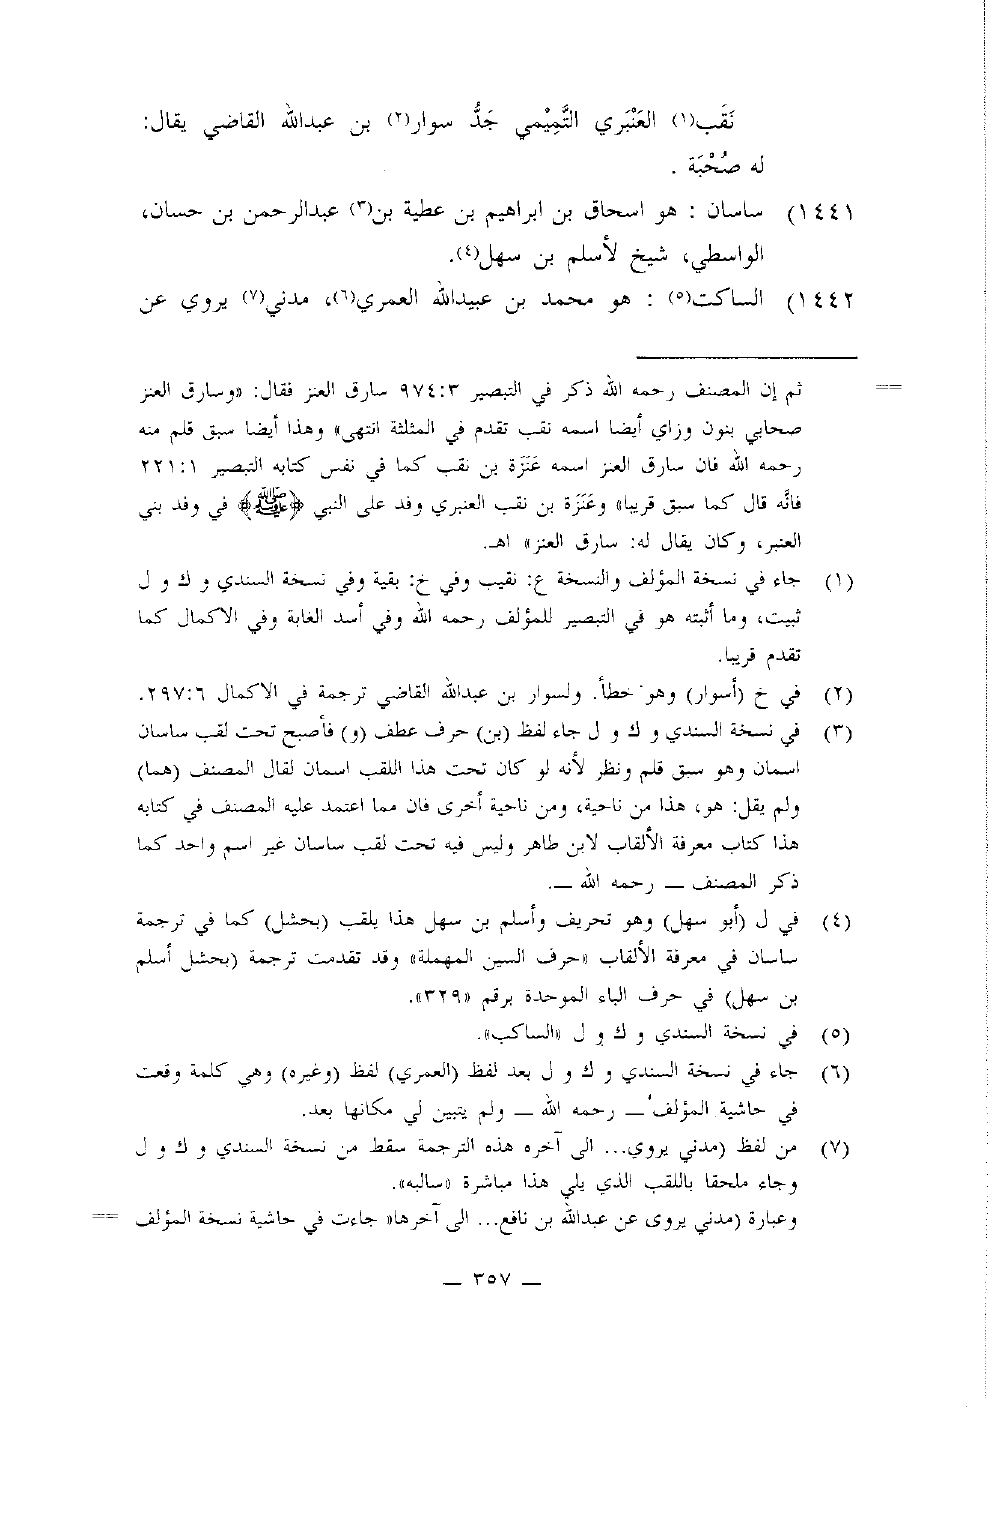 نَقَب(١) العَنْبَري التَّمِيْمي جَدُّ سوار(٢) بن عبدالله القاضي يقال:
له صُحْبَة .
١٤٤١) ساسان : هو اسحاق بن ابراهيم بن عطية بن(٣) عبدالرحمن بن حسان،
الواسطي، شيخ لأسلم بن سهل(٤).
١٤٤٢) الساكت(٥) : هو محمد بن عبيدالله العمري(٦)، مدني(٧) يروي عن
== ثم إن المصنف رحمه الله ذكر في التبصير ٩٧٤:٣ سارق العنز فقال: «وسارق العنز
صحابي بنون وزاي أيضا اسمه نقب تقدم في المثلثة انتهى» وهذا أيضا سبق قلم منه
رحمه الله فان سارق العنز اسمه عَنَزَة بن نقب كما في نفس كتابه التبصير ٢٢١:١
فانَّه قال كما سبق قريبا» وعَنَزَة بن نقب العنبري وفد على النبي ﴿ﷺ﴾ في وفد بني
العنبر، وكان يقال له: سارق العنز» اهـ.
(١) جاء في نسخة المؤلف والنسخة ع: نقيب وفي خ: بقية وفي نسخة السندي و ك و ل
ثبيت، وما أثبته هو في التبصير للمؤلف رحمه الله وفي أسد الغابة وفي الاكمال كما
تقدم قريبا.
(٢) في خ (أسوار) وهو خطأ. ولسوار بن عبدالله القاضي ترجمة في الاكمال ٢٩٧:٦.
(٣) في نسخة السندي و ك و ل جاء لفظ (بن) حرف عطف (و) فأصبح تحت لقب ساسان
اسمان وهو سبق قلم ونظر لأنه لو كان تحت هذا اللقب اسمان لقال المصنف (هما)
ولم يقل: هو، هذا من ناحية، ومن ناحية أخرى فان مما اعتمد عليه المصنف في كتابه
هذا كتاب معرفة الألقاب لابن طاهر وليس فيه تحت لقب ساسان غير اسم واحد كما
ذكر المصنف ــ رحمه الله ــ.
(٤) في ل (أبو سهل) وهو تحريف وأسلم بن سهل هذا يلقب (بحشل) كما في ترجمة
ساسان في معرفة الألقاب «حرف السين المهملة» وقد تقدمت ترجمة (بحشل أسلم
بن سهل) في حرف الباء الموحدة برقم «٣٢٩».
(٥) في نسخة السندي و ك و ل «الساكب».
(٦) جاء في نسخة السندي و ك و ل بعد لفظ (العمري) لفظ (وغيره) وهي كلمة وقعت
في حاشية المؤلف ــ رحمه الله ــ ولم يتبين لي مكانها بعد.
(٧) من لفظ (مدني يروي... الى آخره هذه الترجمة سقط من نسخة السندي و ك و ل
وجاء ملحقا باللقب الذي يلي هذا مباشرة «سالبه».
وعبارة (مدني يروى عن عبدالله بن نافع... الى آخرها» جاءت في حاشية نسخة المؤلف ==
ــ ٣٥٧ ــ